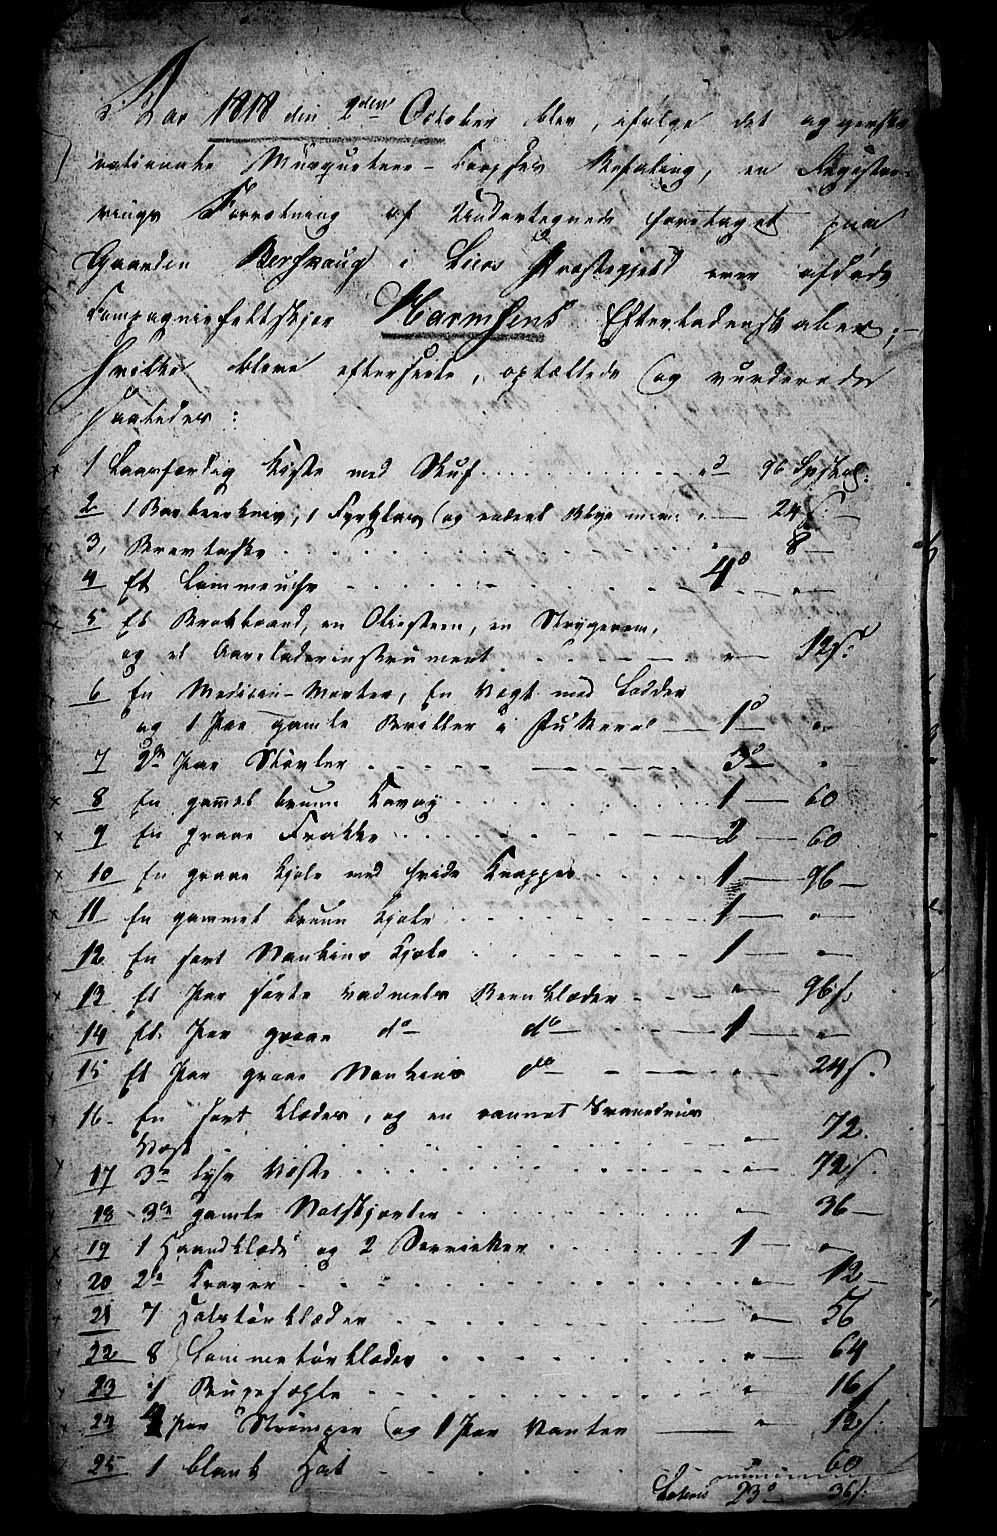 Aar 1818 den 2den October blev, ifølge det aggershus
nationale Musqueteer-Corpses Befaling, en Registre-
rings Forretning af Undertegnede foretaget paa
Gaarden Berskoug i Liers Præstegjeld over afdøde
Compagniefeltskjer Harmsens Efterladenskaber, –
hvilke bleve efterseete, optællede og vurderede
saaledes:
1 Laasfærdig Kiste med Skuf . . . " d 96 
2 1 Barberkniv, 1 Fyrglas og andet 24 s
3, Brevtaske . . . " 8 –
4 Et Lommeuhr . . . 4 d "
5 Et Brokbaand, en Oliesteen, en Strygerem,
og et Aareladerinstrument . . . " 12 s:
6 En Medicin-Morter, En Vægt med Lodder
og 1 Par gamle Briller i Futteral — 1 d "
7 2de Par Støvler . . . 3 d "
8 En gammel bruun Kavay . . . 1 — 60
9 En graae Frakke . . . 2 — 60
10 En graae Kjole med hvide Knapper . . . 1 — 96 –
11 En gammel bruun Kjole . . . 1 — "
12 En sort Nankins Kjole . . . 1 — "
13 Et Par sorte Vadmels Beenklæder . . . " 96 s.
14 Et Par graae do do . . . 1 — "
15 Et Par graae Nankins do . . . " 24 s.
16 - En sort Klædes, og en
Vest . . . " 72.
17 3de lyse Veste . . . " 72 s.
18 3de gamle Natskjorter . . . " 36 –
19 1 Haandklæde og 2 Servietter . . . 1 — "
20 2de Kraver . . . " 12 –
21 7 Halstørklæder . . . " 56
22 8 Lommetørklæder . . . " 64
23 1 . . . " 16 s
24 4 Par Strømper og 1 Par Vanter — " 12 s.
25 1 blank Hat . . . " 60
Lateris 23 d 36 s: